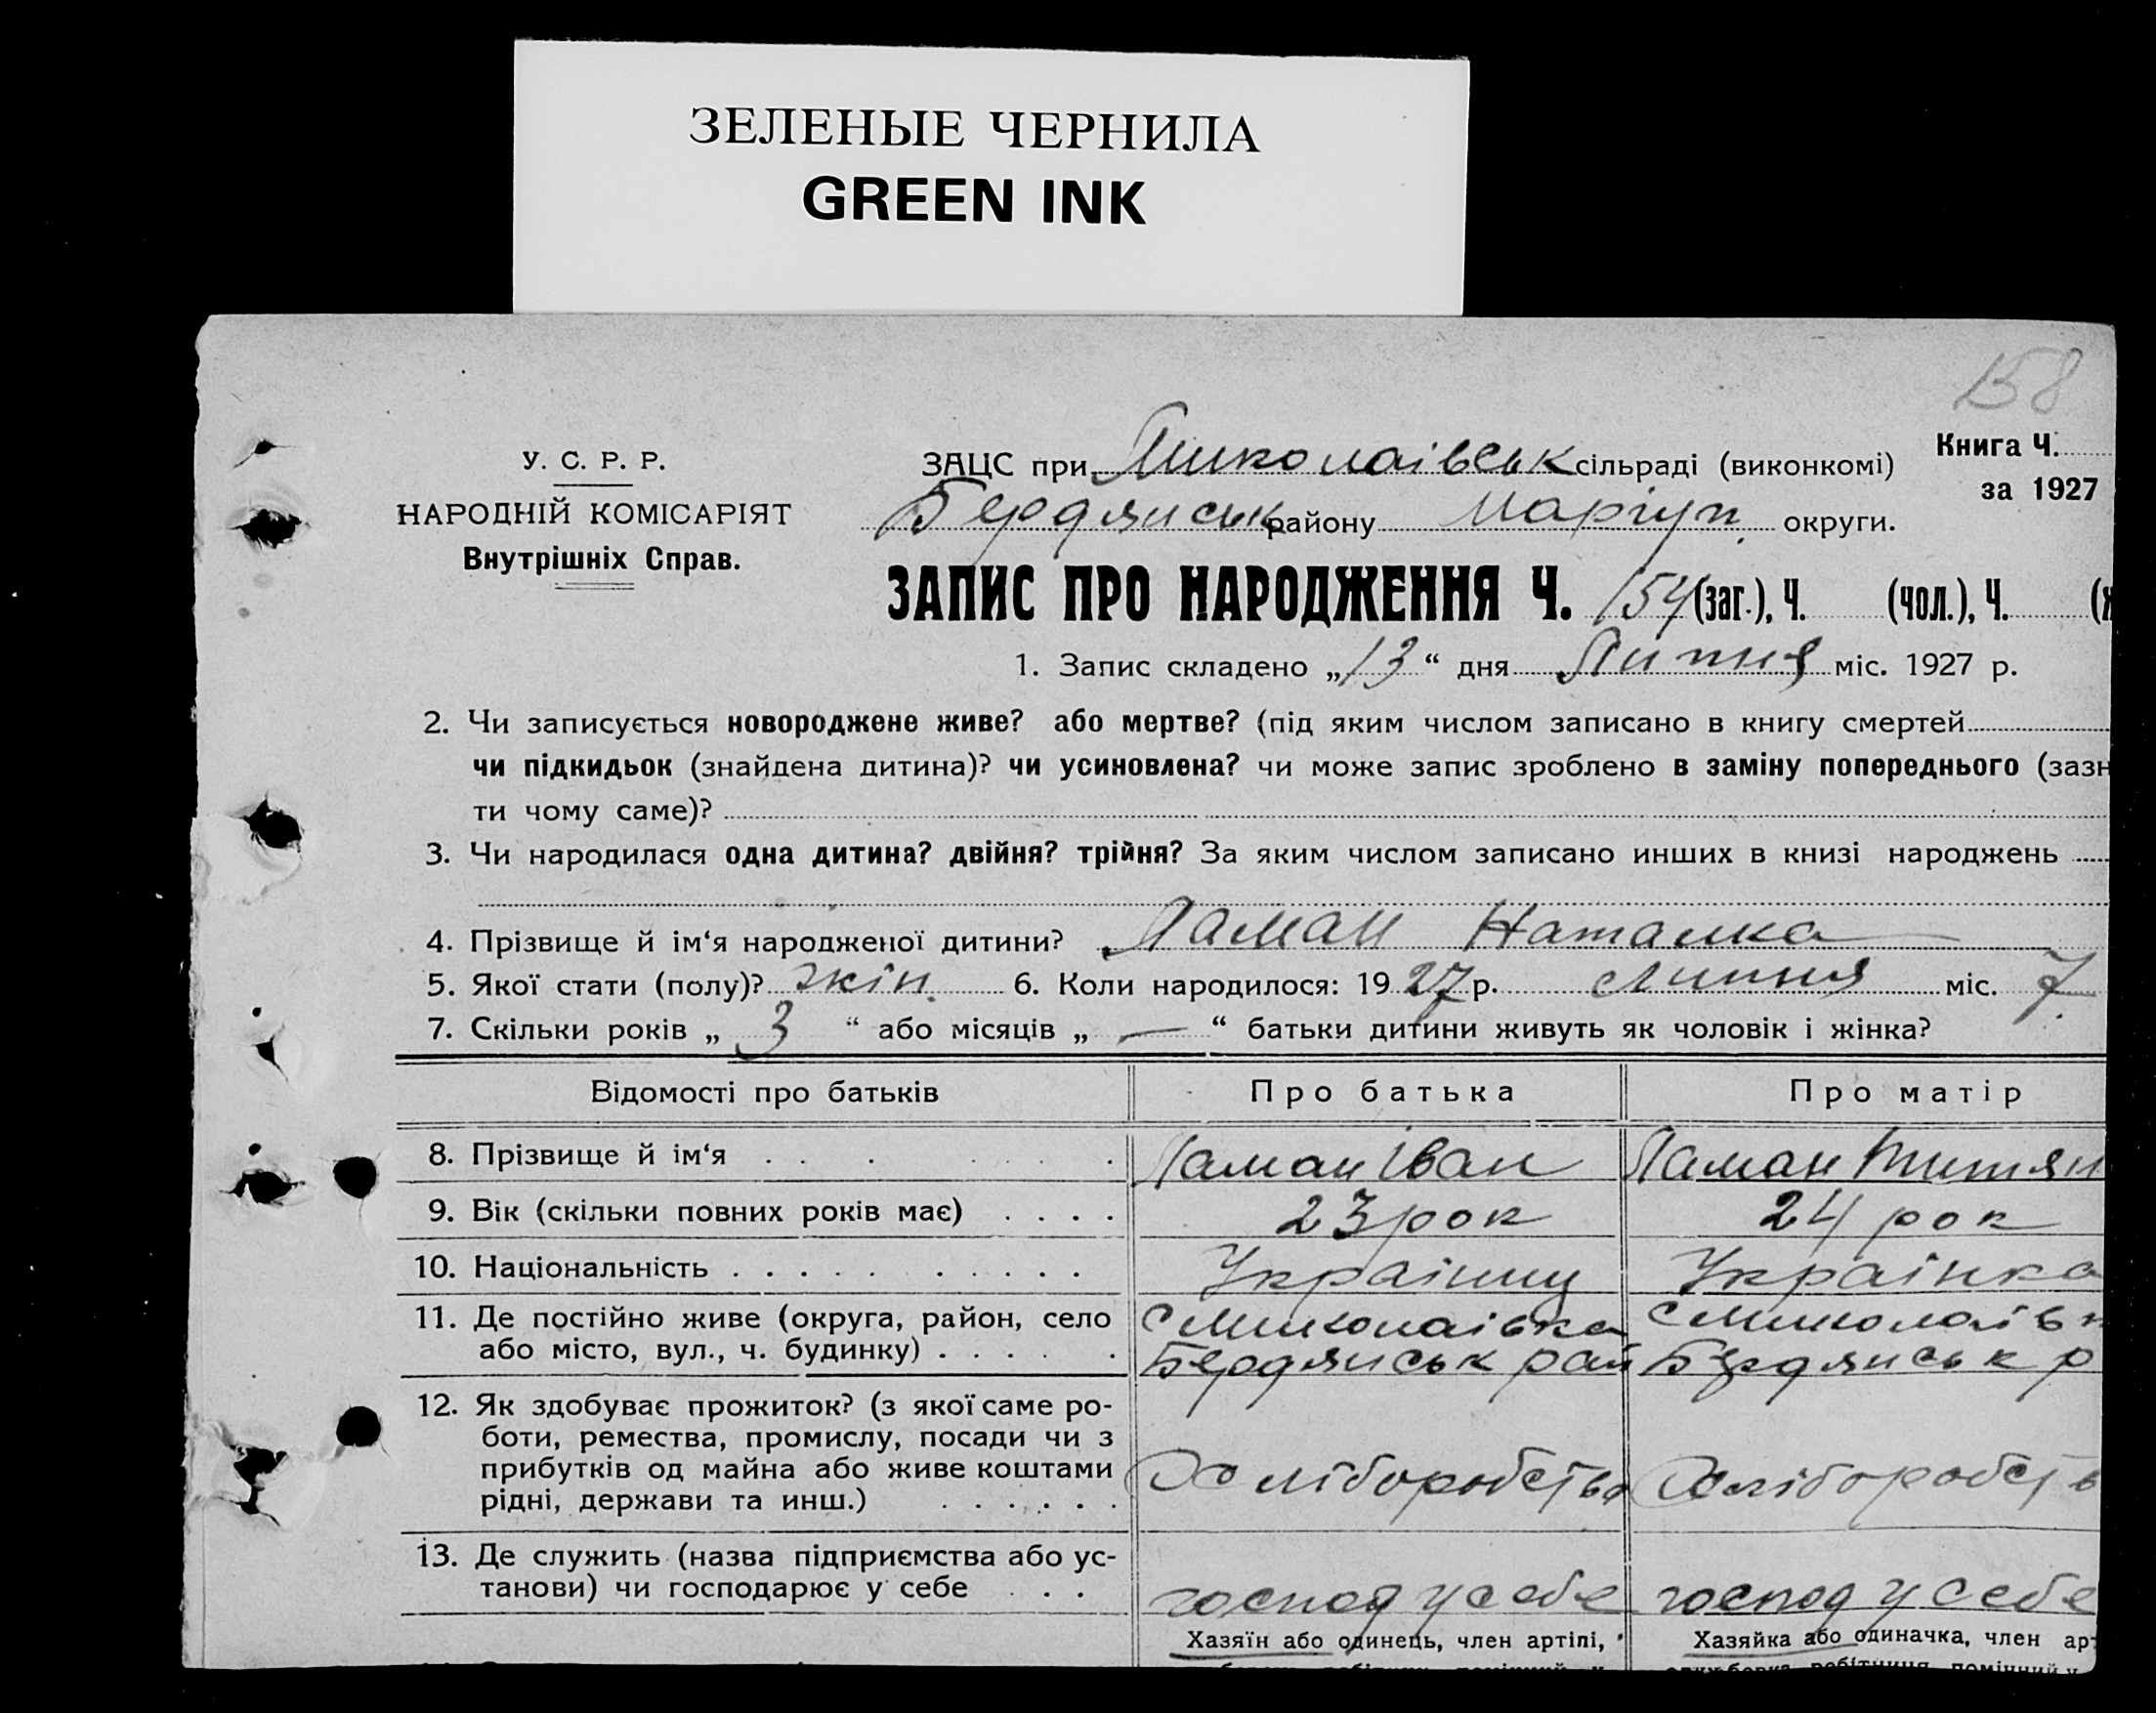 ЗЕЛЕНЫЕ ЧЕРНИЛА
GREEN INK
158
У. С. Р. Р.
НАРОДНІЙ КОМІСАРІЯТ
Внутрішніх Справ.
ЗАЦС при Миколаівськ сільраді (виконкомі)
Книга Ч.
за 1927
Бердянськ району Маріуп. округи.
ЗАПИС ПРО НАРОДЖЕННЯ Ч. 154 (заг.), Ч. (чол.), Ч. (ж
1. Запис складено „13“ дня Липня міс. 1927 р.
2. Чи записується новороджене живе? або мертве? (під яким числом записано в книгу смертей
чи підкидьок (знайдена дитина)? чи усиновлена? чи може запис зроблено в заміну попереднього (зазн
ти чому саме)?
3. Чи народилася одна дитина? двійня? трійня? За яким числом записано инших в книзі народжень
4. Прізвище й ім‘я народженої дитини? Ламан Наталка
5. Якої стати (полу)? жін. 6. Коли народилося: 1927 р. Липня міс. 7
7. Скільки років „ 3 “ або місяців „ — “ батьки дитини живуть як чоловік і жінка?
Відомості про батьків Про батька Про матір
8. Прізвище й ім‘я . . . . . . . Ламан Іван Ламан Титян
9. Вік (скільки повних років має) . . . . 23 рок 24 рок
10. Національність . . . . . . . . . . Українец Українка
11. Де постійно живе (округа, район, село
або місто, вул., ч. будинку) . . . . . .
с Миколаівка с Миколаівк
Бердянськ рай Бердянськ р
12. Як здобуває прожиток? (з якої саме ро-
боти, ремества, промислу, посади чи з
прибутків од майна або живе коштами
рідні, держави та инш.) . . . . . .
Хліборобство Хліборобств
13. Де служить (назва підприємства або ус-
танови) чи господарює у себе . . .
господ у себе господ у себе
Хазяїн або одинець, член артілі, Хазяйка або одиначка, член арт